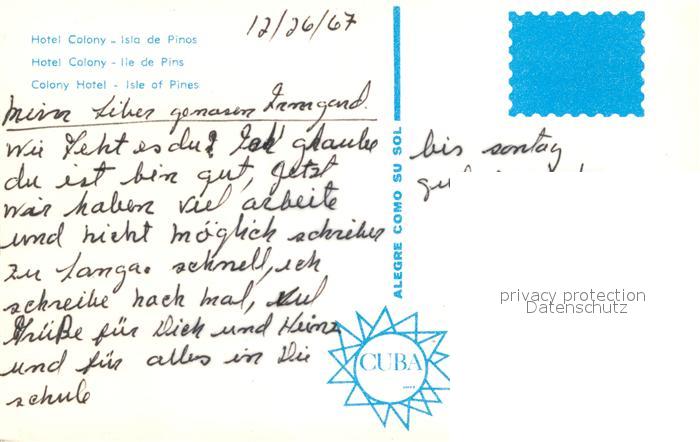 12/26/67
Hotel Colony - Isla de Pinos
Hotel Colony - Ile de Pins
Colony Hotel - Isle of Pines
Mein Liber genosen Irmgard.
Wie Geht es du? Ich glaube
du ist bin gut, Jetzt
wir haben viel arbeite
und nicht möglich schreiben
zu Langa. schnell, ich
schreibe nach mal, viel
Grüße für Dich und Heinz
und für alles in Die
schule
bis sontag
ALEGRE COMO SU SOL
CUBA
privacy protection
Datenschutz